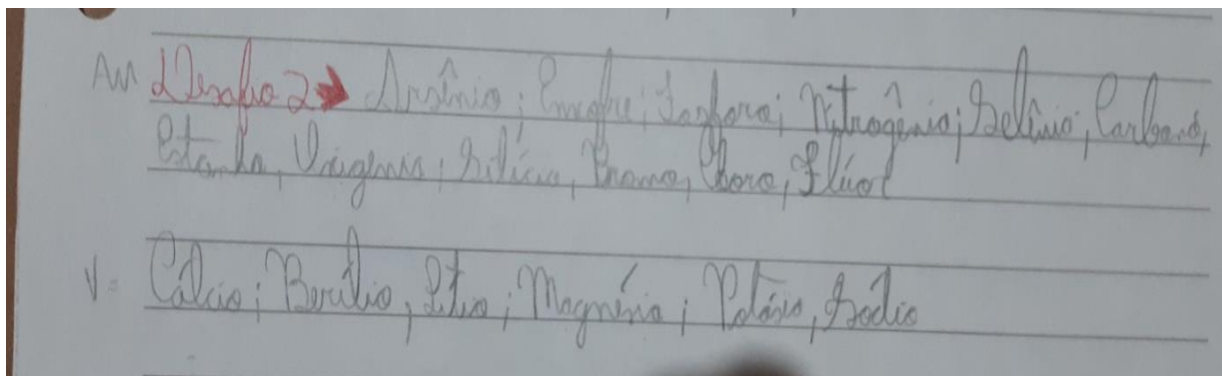 Am Desafio 2→ Arsênio; Enxofre; Fósforo; Nitrogênio; Selênio; Carbono,
Estanho, Oxigênio; Silício, Bromo, Cloro, Flúor
V= Cálcio; Berílio, Lítio; Magnésio; Potássio, Sódio